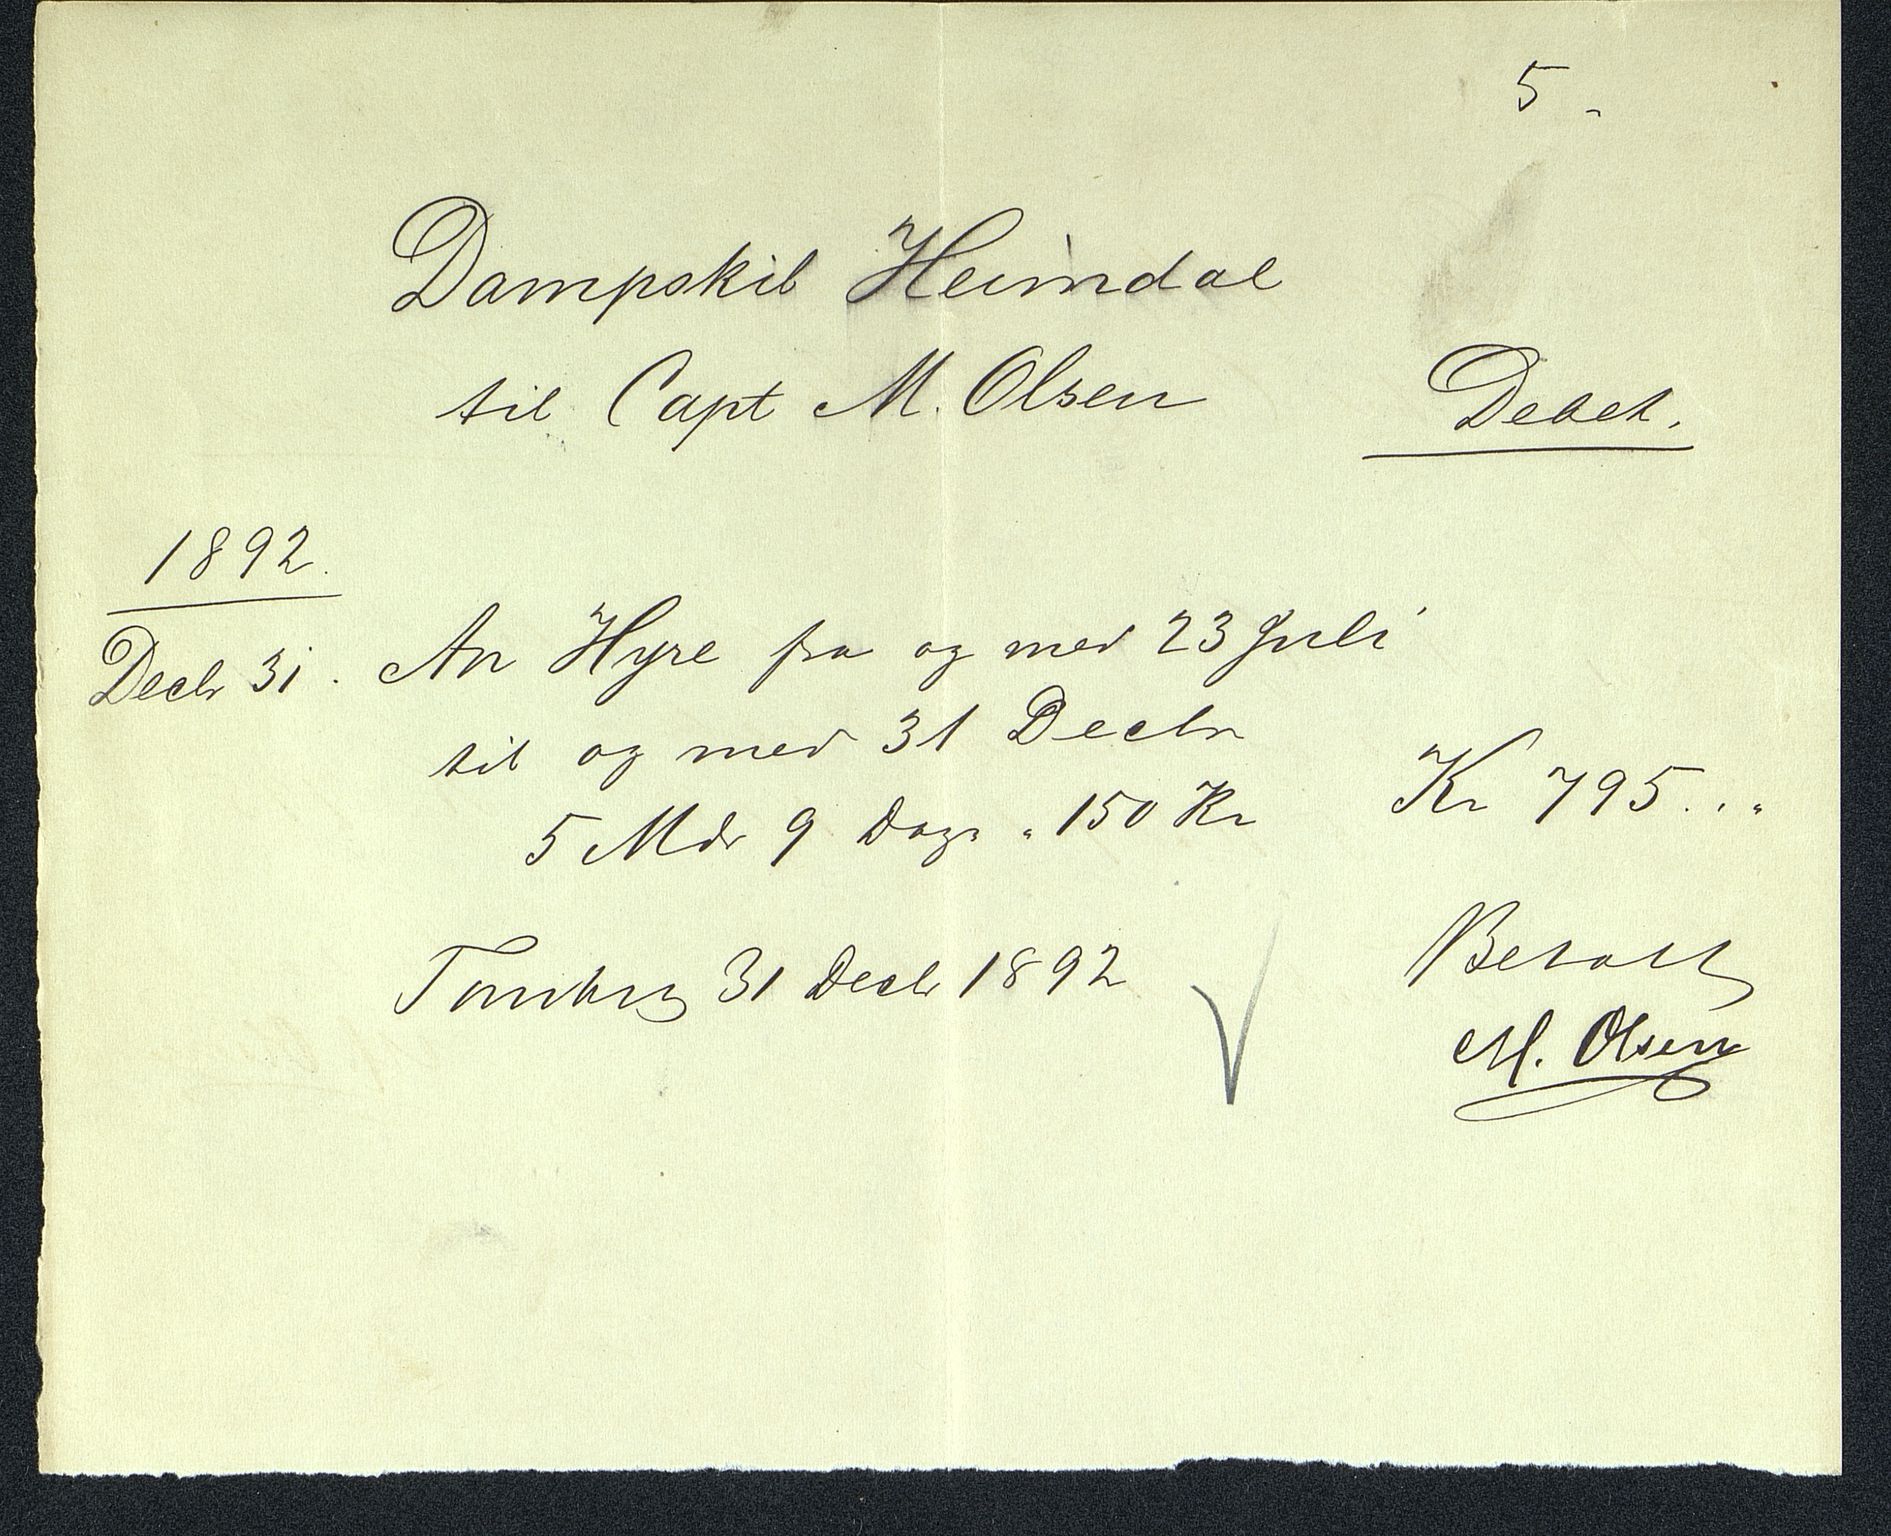 5 -
Dampskib Heimdal
til Capt M. Olsen Debet.
1892.
Decbr 31. An Hyre fra og med 23 Juli
til og med 31 Decbr
5 Mdr 9 Dage " 150 Kr Kr 795 . . "
Tønsberg 31 Decbr 1892
Betalt
M. Olsen